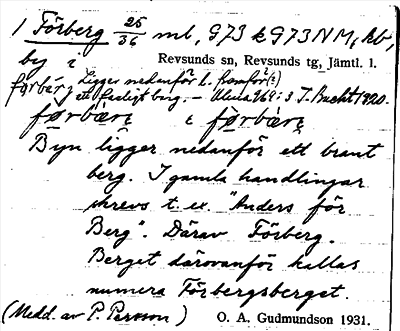 1 Förberg 25/36 ml, G73 k G73 NM, kb,
by i Revsunds sn, Revsunds tg, Jämtl. l.
Ligger nedanför l. framför (?)
ett farligt berg. – Ulma 269:3 T. Bucht 1920.
Byn ligger nedanför ett brant
berg. I gamla handlingar
skrevs t. ex. "Anders för
Berg". Därav Förberg.
Berget därovanför kallas
numera Förbergsberget.
(Medd. av P. Persson) O. A. Gudmundson 1931.